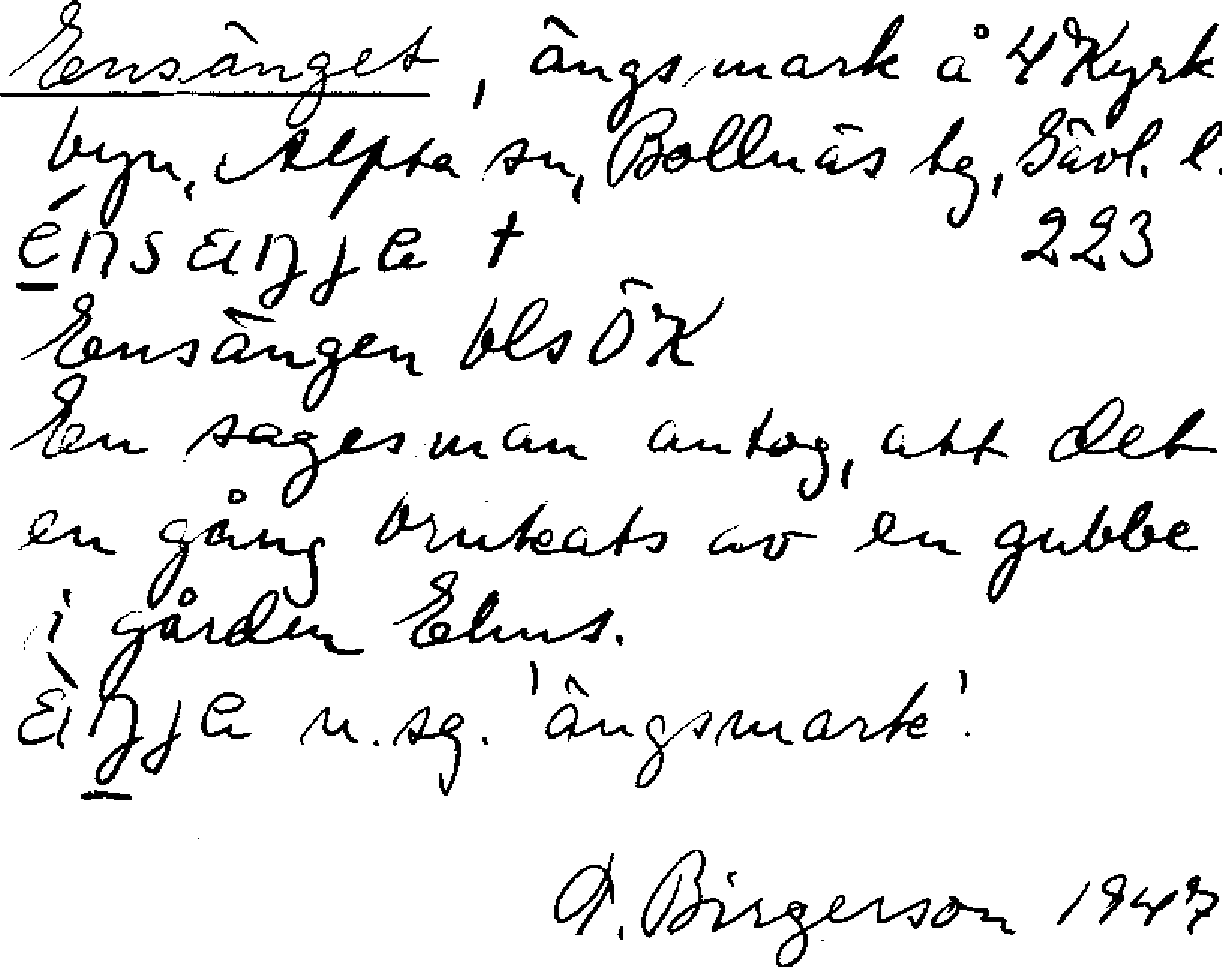 Ensänget, ängsmark å 4 Kyrk
byn, Alfta sn, Bollnäs tg, Gävl. l.
énsaŋja † 223
Ensängen bls ÖK
En sagesman antog, att det
en gång brukats av en gubbe
i gården Ehns.
àŋja n. sg. 'ängsmark'.
A. Birgerson 1947